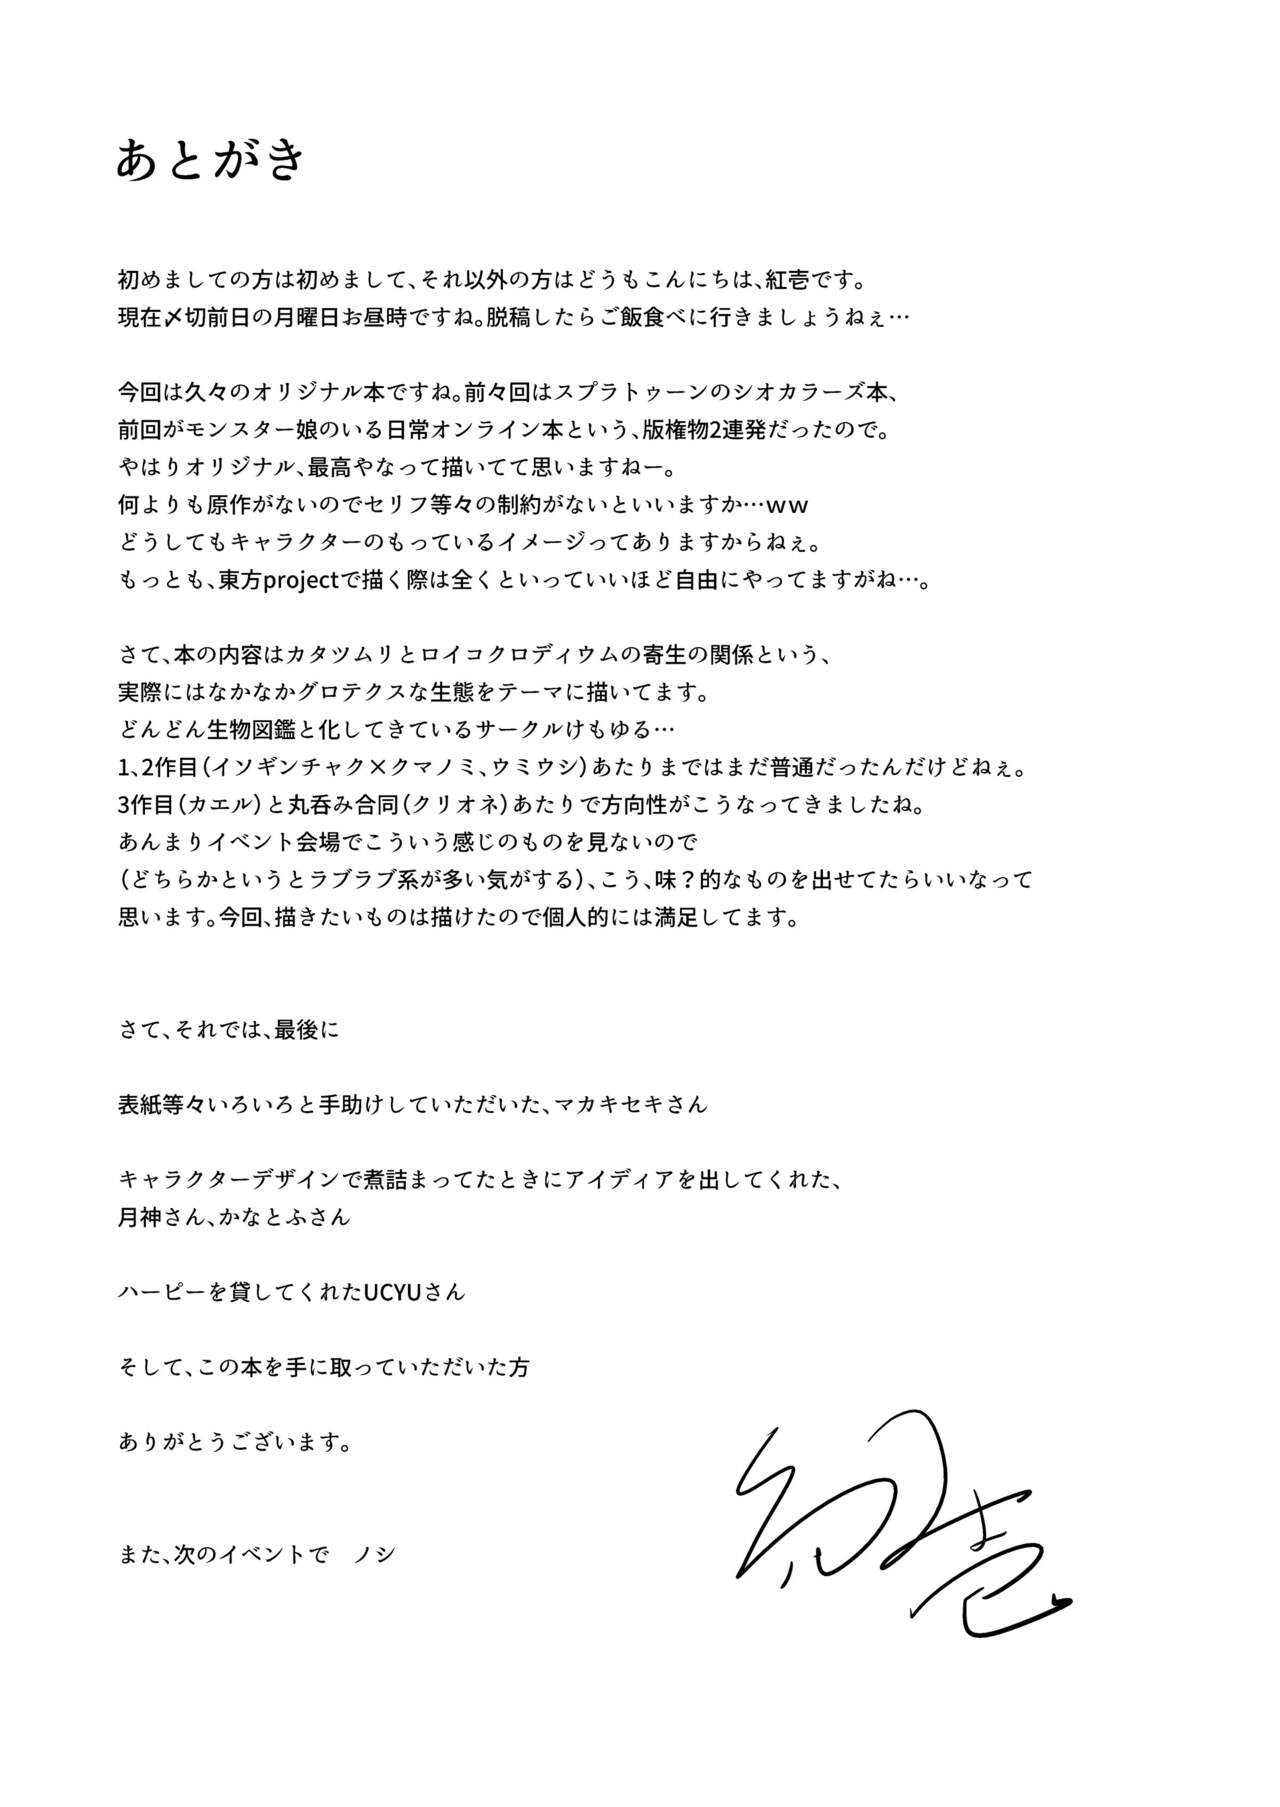 あとがき
初めましての方は初めまして、それ以外の方はどうもこんにちは、紅壱です。
現在〆切前日の月曜日お昼時ですね。脱稿したらご飯食べに行きましょうねぇ…
今回は久々のオリジナル本ですね。前々回はスプラトゥーンのシオカラーズ本、
前回がモンスター娘のいる日常オンライン本という、版権物2連発だったので。
やはりオリジナル、最高やなって描いてて思いますねー。
何よりも原作がないのでセリフ等々の制約がないといいますか…ww
どうしてもキャラクターのもっているイメージってありますからねぇ。
もっとも、東方projectで描く際は全くといっていいほど自由にやってますがね…。
さて、本の内容はカタツムリとロイコクロディウムの寄生の関係という、
実際にはなかなかグロテクスな生態をテーマに描いてます。
どんどん生物図鑑と化してきているサークルけもゆる…
1、2作目（イソギンチャク×クマノミ、ウミウシ）あたりまではまだ普通だったんだけどねぇ。
3作目（カエル）と丸呑み合同（クリオネ）あたりで方向性がこうなってきましたね。
あんまりイベント会場でこういう感じのものを見ないので
（どちらかというとラブラブ系が多い気がする）、こう、味？的なものを出せてたらいいなって
思います。今回、描きたいものは描けたので個人的には満足してます。
さて、それでは、最後に
表紙等々いろいろと手助けしていただいた、マカキセキさん
キャラクターデザインで煮詰まってたときにアイディアを出してくれた、
月神さん、かなとふさん
ハーピーを貸してくれたUCYUさん
そして、この本を手に取っていただいた方
ありがとうございます。
また、次のイベントで　ノシ
紅壱